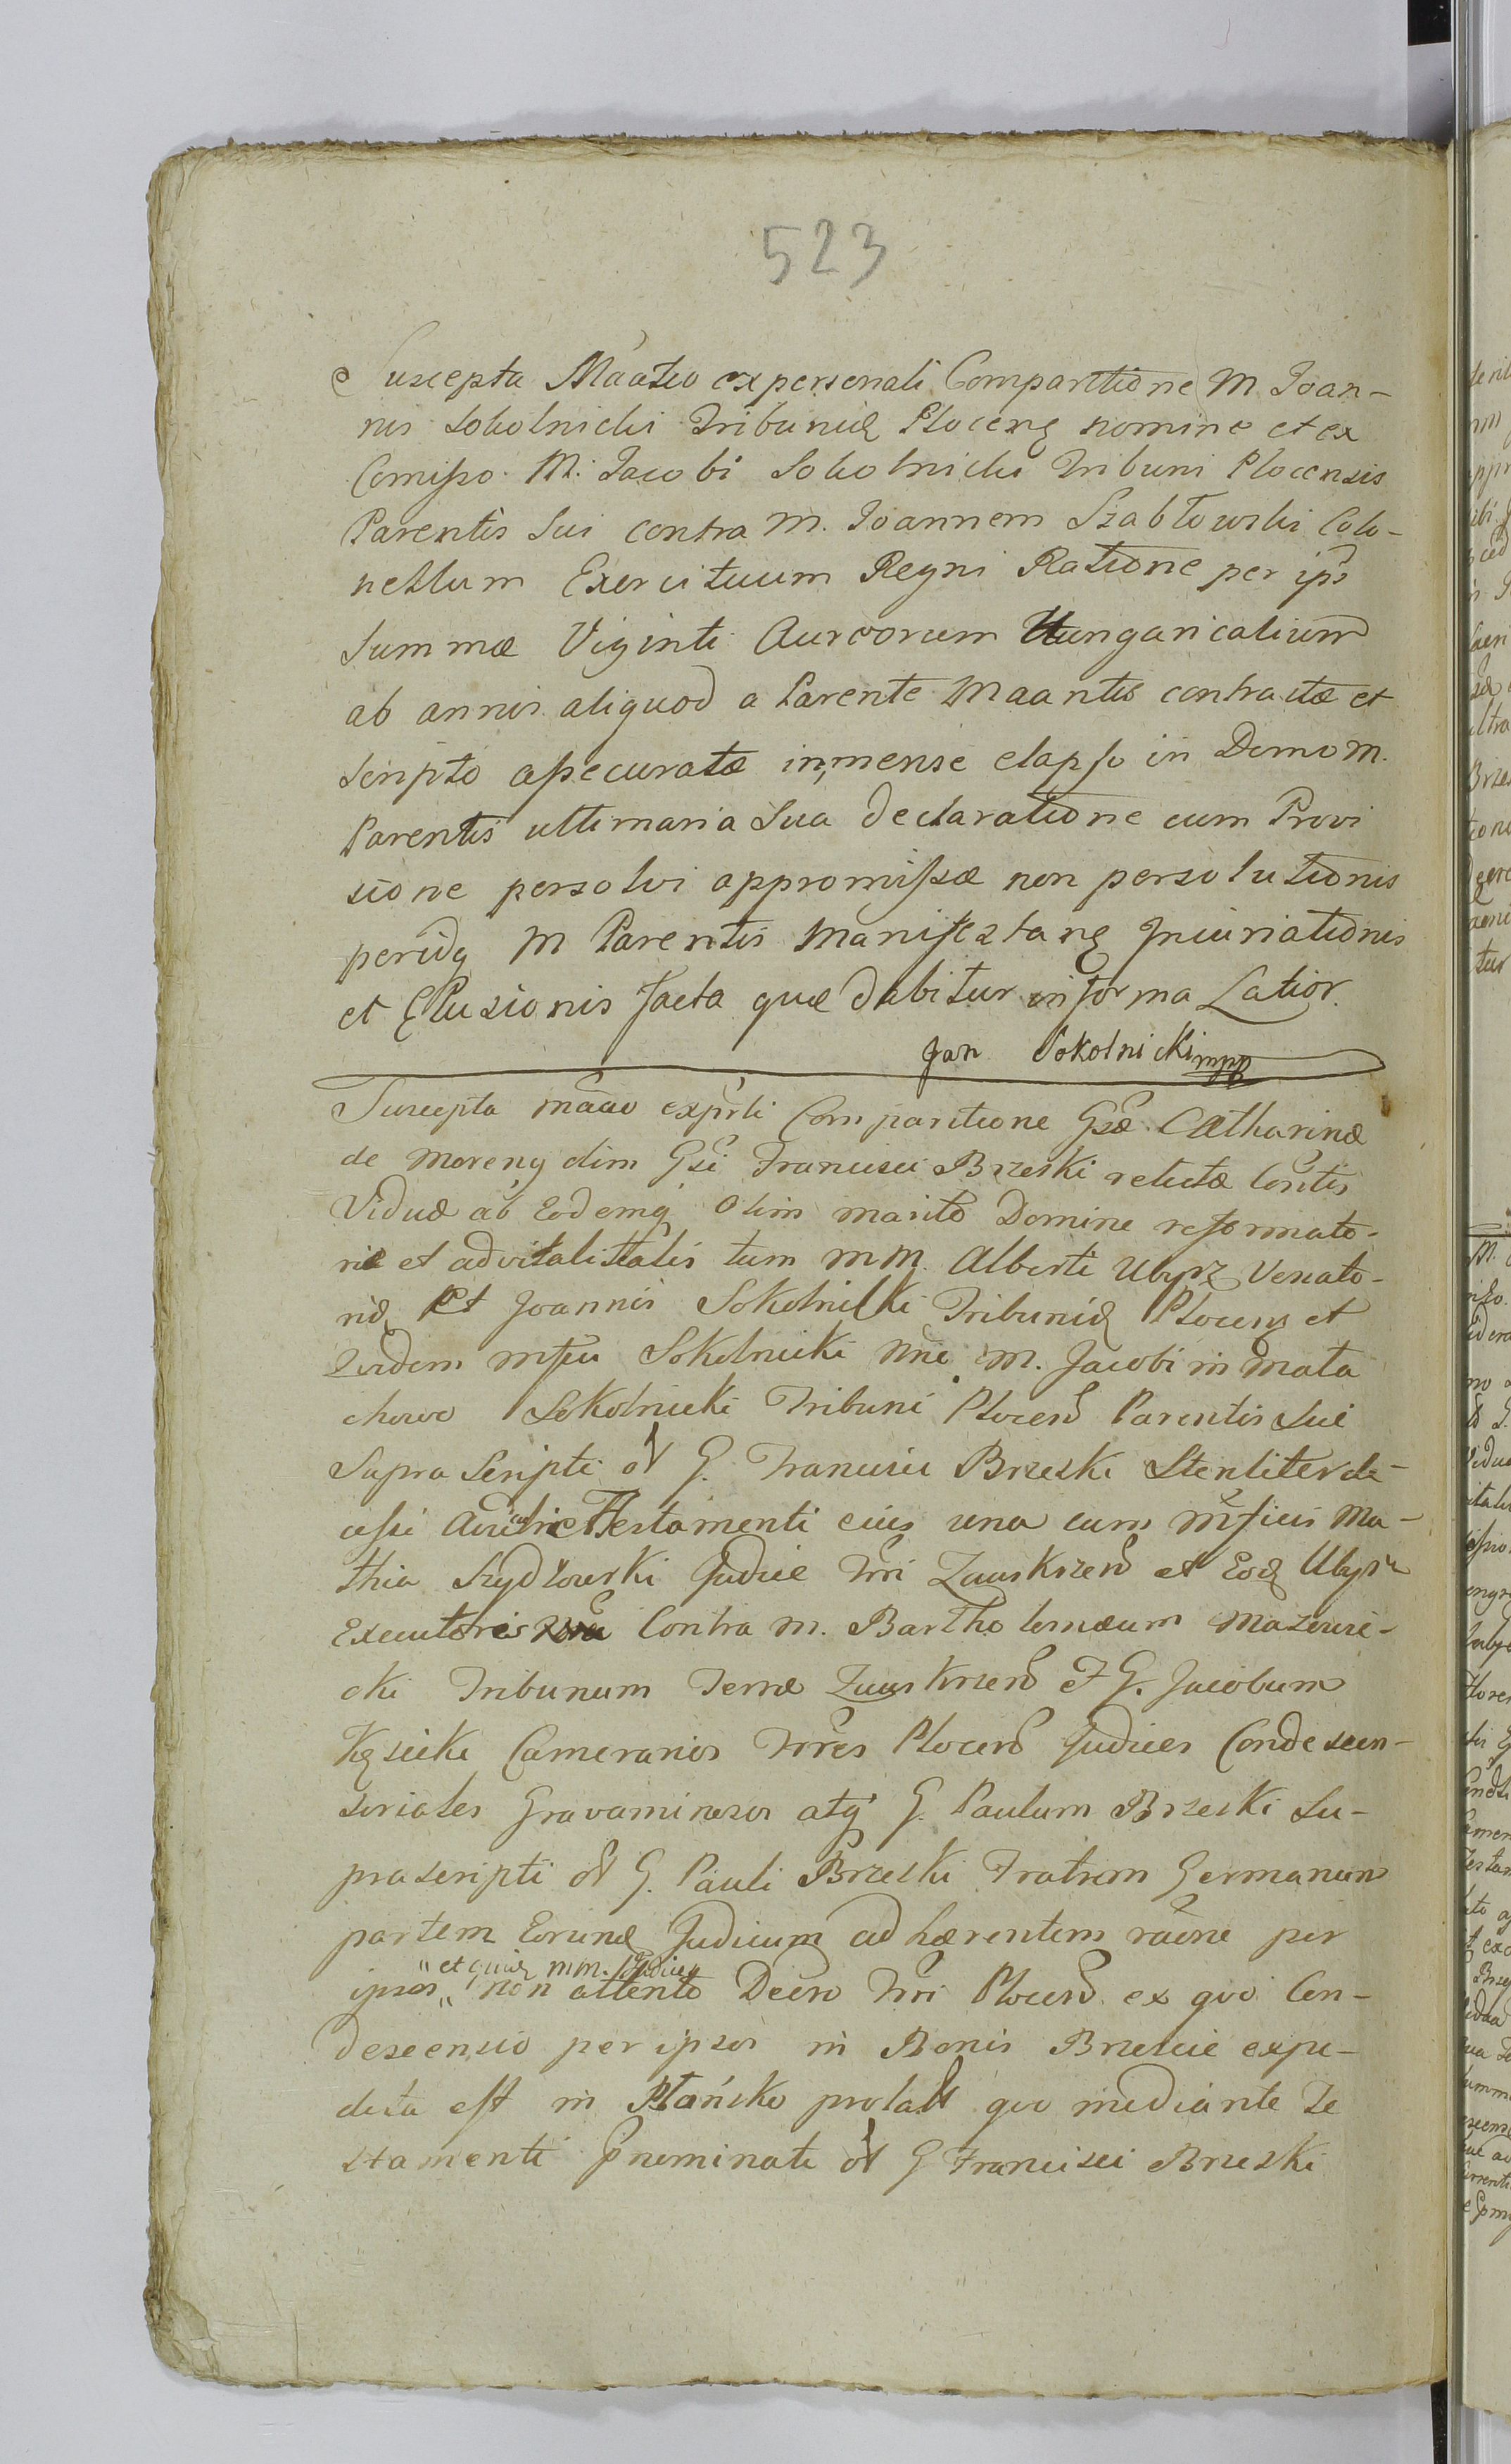 523
Suscepta Maatio ex personali Comparitione M. Joan-
nis Sokolnicki Tribunid Plocens nomine et ex
Comißo M. Jacobi Sokolnicki Tribuni Plocensis
Parentis Sui contra M. Joannem Szabłowski Colo-
nellum Exercituum Regni Ratione per ips
Summæ Viginti Aureorum Hungaricalium
ab annis aliquod a Parente Maantis contractæ et
Scripto aßecuratæ in mense elapso in Domo M.
Parentis ultimaria Sua declaratione cum Provi
sione persolvi appromißæ non persolutionis
peridq M Parentis Manifestans Iniuriationis
et Elusionis facta quæ dabitur in forma Latior.
Jan Sokolnicki mpp
Suscepta maao exprli Comparitione Gsæ Catharinæ
de Moreng olim Gsi Francisci Brzeski relictæ Contis
Viduæ ab Eodemq Olim marito Domine reformato-
riæ et advitalitatis tum MM. Alberti Ubysz Venato-
rid Et Joannis Sokolnicki Tribunid Plocens et
Eiudem mfici Sokolnicki nne M. Jacobi in Mała
chowo Sokolnicki Tribuni Plocens Parentis Sui
Supra Scripti ol G. Francisci Brzeski Stenliter de-
ceßi Testamenti eius una cum mficis Ma-
thia Szydłowski Judice Tri Zawskrzens et Eod Ubysz
Executores Contra M. Bartholomæum Mazowie-
cki Tribunum Terræ Zawskrzens et G. Jacobum
Kęsicki Camerarios Trres Plocens Judices Condescen-
soriales Gravaminosos atq G. Paulum Brzeski Su-
prascripti ol G. Pauli Brzeski Fratrem Germanum
partem Eorund Judicum adhærentem raone per
"et quid MM. Judices
ipsos" non attento Decro Tri Plocens ex quo Con-
descensio per ipsos in Bonis Brzescie expe-
dita est in Płońsko prolat quo mediante Te
stamenti pnominati ol G Francisci Brzeski